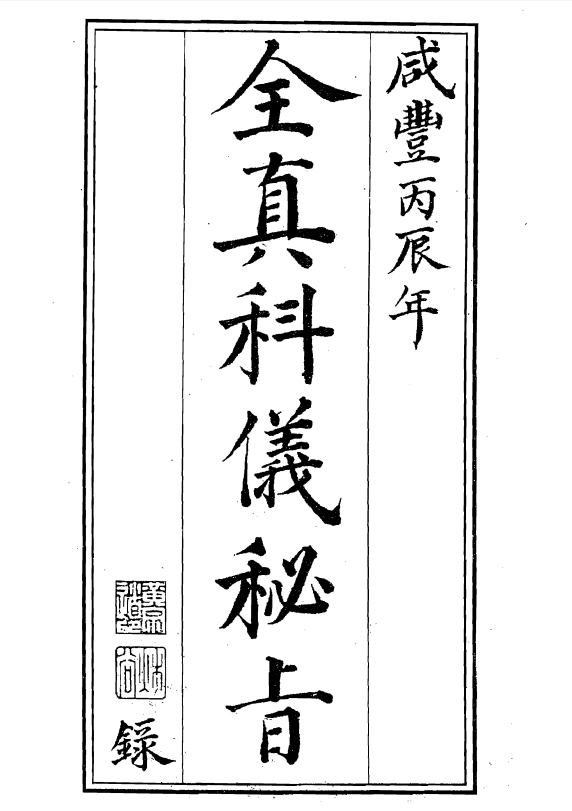 咸豐丙辰年
全真科儀秘旨
錄